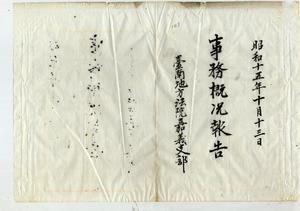 昭和十五年十月十三日
事務概況報告
臺南地方法院嘉義支部